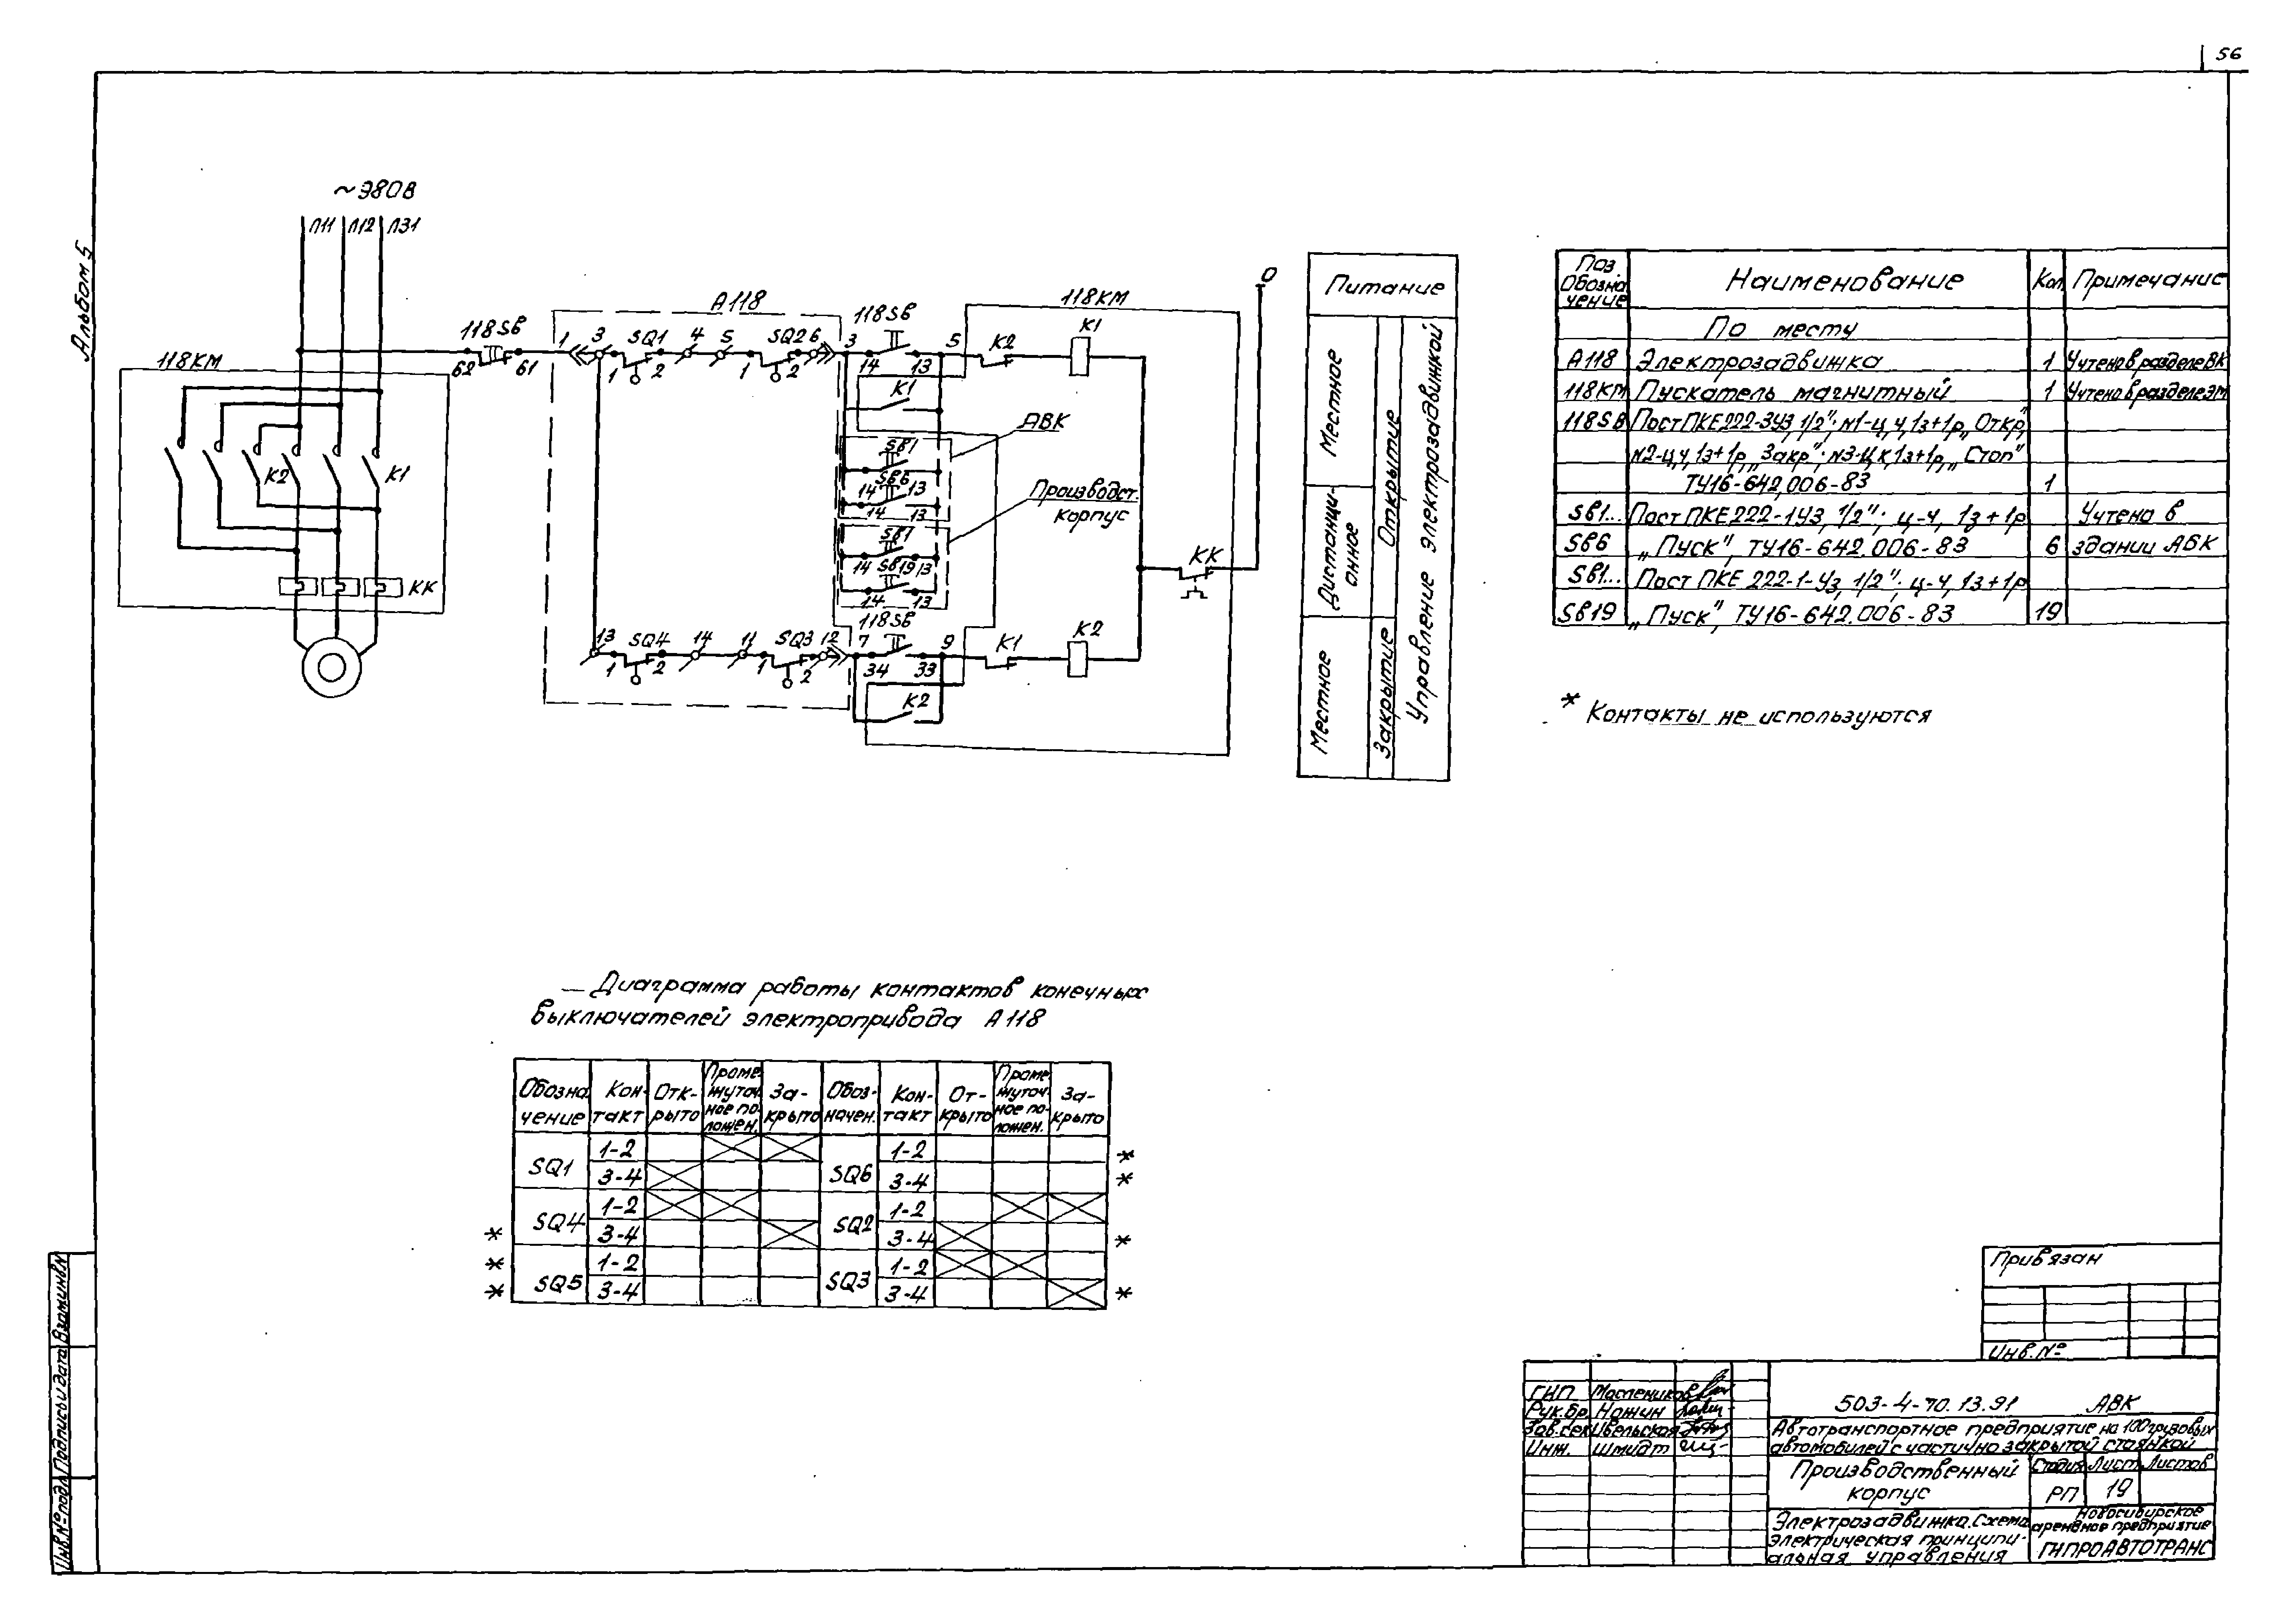 56
Альбом 5
~380В
Л11 Л12 Л31
118КМ
К2
К1
КК
118SВ
62 61
А118
1 3 SQ1 4 5 SQ2 6 3
1 2 1 2
118SВ
14 13
5
118КМ
К2
К1
К1
АВК
SВ1
14 13
SВ6
14 13
Производст.
корпус
SВ1
14 13
SВ19
14 13
КК
0
13 SQ4 14 11 SQ3 12 7
1 2 1 2
118SВ
34 33
9
К1
К2
К2
Питание
Местное
Дистанци-
онное
Местное
Открытие
Закрытие
Управление электрозадвижкой
Поз. Обозна чение
Наименование
Кол.
Примечание
По месту
А118 Электрозадвижка 1 Учтено в разделе ВК
118КМ Пускатель магнитный 1 Учтено в разделе ЭМ
118SВ Пост ПКЕ 222-3У3, 1/2"; №1-ц, ч, 1з+1р „Откр",
№2-ц, ч, 1з+1р, „Закр"; №3-ц, к, 1з+1р, „Стоп"
ТУ16-642.006-83 1
SВ1... Пост ПКЕ 222-1У3, 1/2"; ц-ч, 1з+1р Учтено в
SВ6 „Пуск", ТУ16-642.006-83 6 здании АБК
SВ1... Пост ПКЕ 222-1-У3, 1/2"; ц-ч, 1з+1р
SВ19 „Пуск", ТУ16-642.006-83 19
* Контакты не используются
Диаграмма работы контактов конечных
выключателей электропривода А118
Обозна чение
Кон- такт
Отк- рыто
Проме- жуточ- ное по- ложен.
За- крыто
Обоз- начен.
Кон- такт
От- крыто
Проме жуточ- ное по- ложен.
За- крыто
SQ1 1-2 SQ6 1-2 *
3-4 3-4 *
SQ4 1-2 SQ2 1-2
* 3-4 3-4 *
* SQ5 1-2 SQ3 1-2
* 3-4 3-4 *
Привязан
Инв. №
ГИП Маслеников
Рук.бр. Ножин
Зав.сек Цвельская
Инж. Шмидт
503-4-70.13.91 АВК
Автотранспортное предприятие на 100 грузовых
автомобилей с частично закрытой стоянкой
Производственный
корпус
Стадия Лист Листов
РП 19
Электрозадвижка. Схема
электрическая принципи-
альная управления
Новосибирское
арендное предприятие
ГИПРОАВТОТРАНС
Инв.№подл. Подпись и дата Взам.инв.№